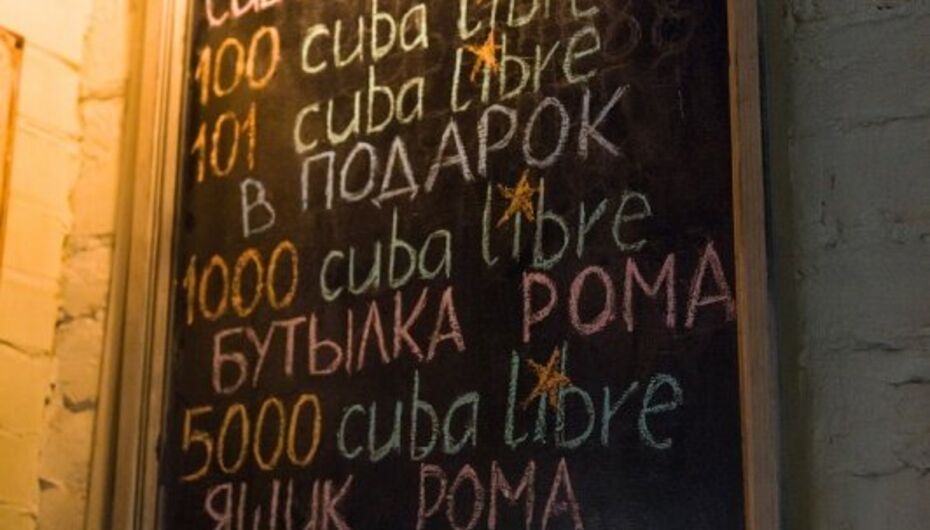 100 cuba libre
101 cuba libre
В ПОДАРОК
1000 cuba libre
БУТЫЛКА РОМА
5000 cuba libre
ЯЩИК РОМА